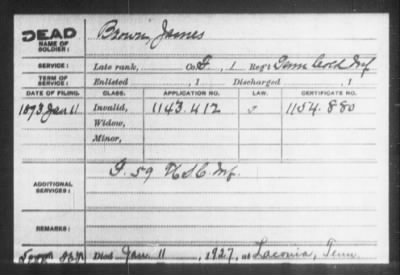 DEAD
NAME OF SOLDIER:
Brown, James
SERVICE:
Late rank, Co. F, 1 Reg't Tenn Cold Inf
TERM OF SERVICE:
Enlisted , 1 Discharged , 1
DATE OF FILING. CLASS. APPLICATION NO. LAW. CERTIFICATE NO.
Jan 11 Invalid, 1143.412 1154.880
Widow,
Minor,
ADDITIONAL SERVICES:
59 U S C Inf.
REMARKS:
Died Jan. 11, 1927, at Laconia, Tenn